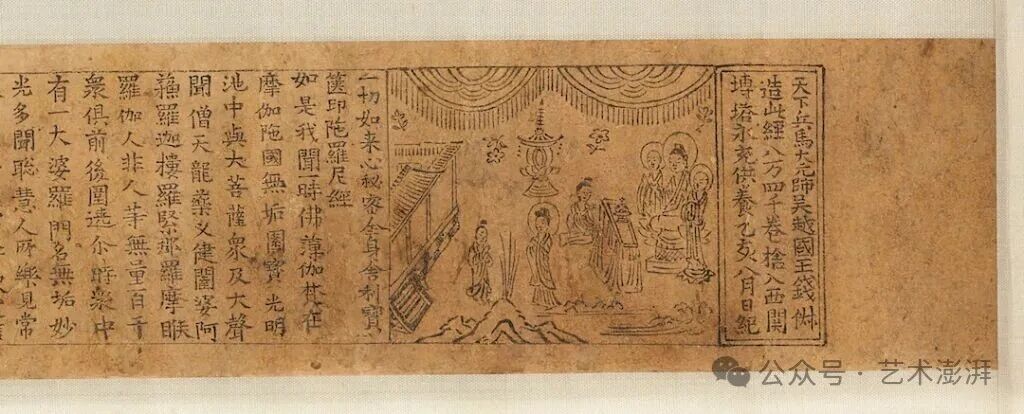 天下兵馬大元帥吳越國王錢俶
造此經八万四千卷捨入西関
塼塔永充供養乙亥八月日紀
一切如来心秘密全身舍利寶
篋印陁羅尼經
如是我聞一時佛薄伽梵在
摩伽陁國無垢園寶光明
池中與大菩薩衆及大聲
聞僧天龍藥叉健闥婆阿
蘓羅迦樓羅緊那羅摩睺
羅伽人非人等無量百千
衆俱前後圍遶尒時衆中
有一大婆羅門名無垢妙
光多聞聡慧人所樂見常
公众号·艺术澎湃